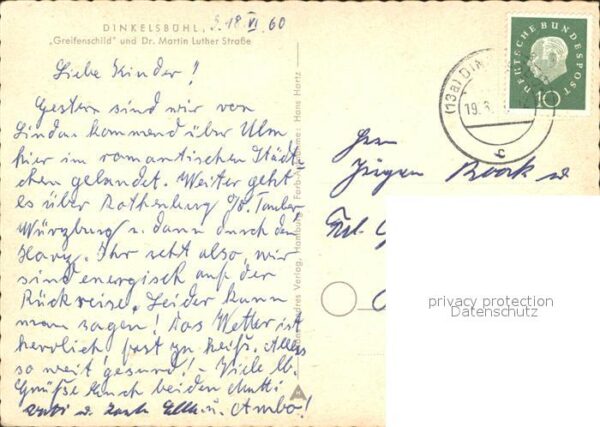 DINKELSBÜHL, d. 18. VI. 60
„Greifenschild" und Dr. Martin Luther Straße
Liebe Kinder!
Gestern sind wir von
Lindau kommend über Ulm
hier im romantischen Städt-
chen gelandet. Weiter geht
es über Rothenburg o/Tauber
Würzburg u. dann durch den
Harz. Ihr seht also, wir
sind energisch auf der
Rückreise. Leider kann
man sagen! Das Wetter ist
herrlich, fast zu heiß. Alles
so weit gesund! – Viele lb.
Grüße Euch beiden Mutti
Vati u. Ella u. Ambo!
Verlag, Hamburg
Farb- Hans Hartz
DEUTSCHE BUNDESPOST
10
(13a) DIN
19.
c
Herrn
Jürgen u
Frl. G
privacy protection
Datenschutz